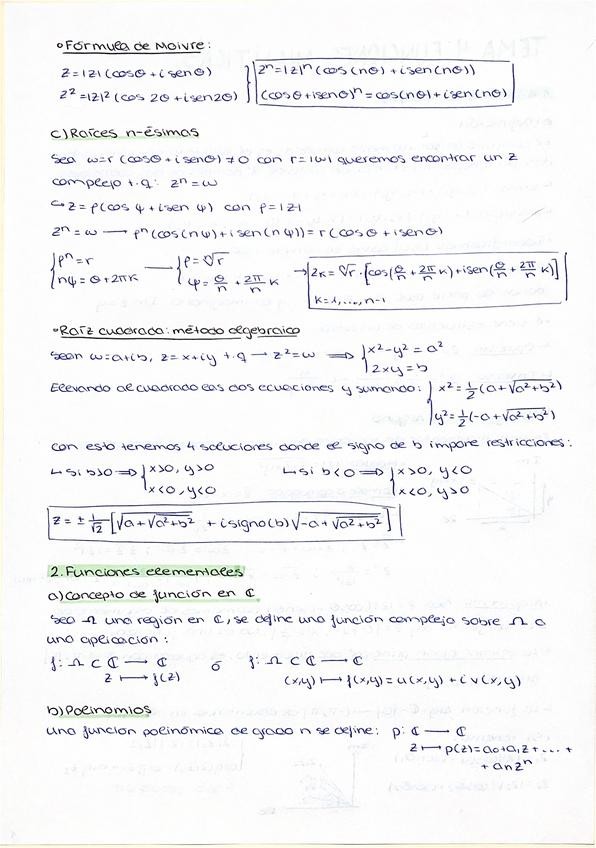 ° Fórmula de Moivre:
z=|z|(cosθ+isenθ)
z²=|z|²(cos 2θ+isen2θ)
zⁿ=|z|ⁿ(cos(nθ)+isen(nθ))
(cosθ+isenθ)ⁿ=cos(nθ)+isen(nθ)
c) Raíces n-ésimas
Sea ω=r(cosθ+isenθ)≠0 con r=|ω| queremos encontrar un z
complejo t.q: zⁿ=ω
↳ z=ρ(cos ψ+isen ψ) con ρ=|z|
zⁿ=ω ⟶ ρⁿ(cos(nψ)+isen(nψ))=r(cosθ+isenθ)
{ρⁿ=r ⟶ {ρ=ⁿ√r
nψ=θ+2πk ψ=θ/n+2π/n k
→ zₖ=ⁿ√r·[cos(θ/n+2π/n k)+isen(θ/n+2π/n k)]
k=1,...,n-1
° Raíz cuadrada: método algebraico
Sean ω=a+ib, z=x+iy t.q ⟶ z²=ω ⟹ {x²-y²=a²
2xy=b
Elevando al cuadrado las dos ecuaciones y sumando: {x²=1/2(a+√a²+b²)
y²=1/2(-a+√a²+b²)
Con esto tenemos 4 soluciones donde el signo de b impone restricciones:
↳ si b>0 ⟹ {x>0, y>0 ↳ si b<0 ⟹ {x>0, y<0
x<0, y<0 x<0, y>0
z=± 1/√2 [√a+√a²+b² + i signo(b)√-a+√a²+b²]
2. Funciones elementales
a) Concepto de función en ℂ
Sea Ω una región en ℂ, se define una función compleja sobre Ω a
una aplicación:
f: Ω ⊂ ℂ ⟶ ℂ ó f: Ω ⊂ ℂ ⟶ ℂ
z ⟼ f(z) (x,y) ⟼ f(x,y)=u(x,y)+iv(x,y)
b) Polinomios
Una función polinómica de grado n se define: p: ℂ ⟶ ℂ
z ⟼ p(z)=a₀+a₁z+...+
+aₙzⁿ